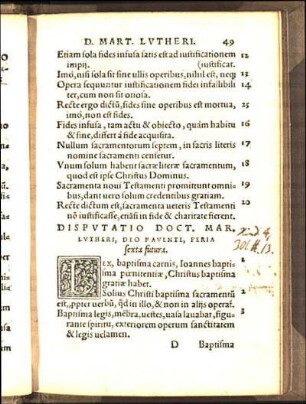 D. MART. LVTHERI. 49
Etiam sola fides infusa satis est ad iustificationem 12
impij. (iustificat.
Imò, nisi sola sit sine ullis operibus, nihil est, neq; 13
Opera sequuntur iustificationem fidei infallibili 14
ter, cum non sit ociosa.
Recte ergo dictũ, fides sine operibus est mortua, 15
imò, non est fides.
Fides infusa, tam actu & obiecto, quàm habitu 16
& fine, differt à fide acquisita.
Nullum sacramentorum septem, in sacris literis 17
nomine sacramenti censetur.
Vnum solum habent sacræ literæ sacramentum, 18
quod est ipse Christus Dominus.
Sacramenta noui Testamenti promittunt omni= 19
bus, dant uero solum credentibus gratiam.
Recte dictum est, sacramenta ueteris Testamenti 20
nõ iustificasse, etiãsi in fide & charitate fierent.
DISPVTATIO DOCT. MAR.
LVTHERI, DEO FAVENTE, FERIA
sexta futura.
EX, baptisma carnis, Ioannes bapti=
sma pœnitentiæ, Christus baptisma
gratiæ habet.
Solius Christi baptisma sacramentũ 2
est, ꝓpter uerbũ, qđ in illo, & non in alijs operat̃.
Baptisma legis, mẽbra, uestes, uasa lauabat, figu= 3
rante spiritu, exteriorem operum sanctitatem
& legis uelamen.
D Baptisma